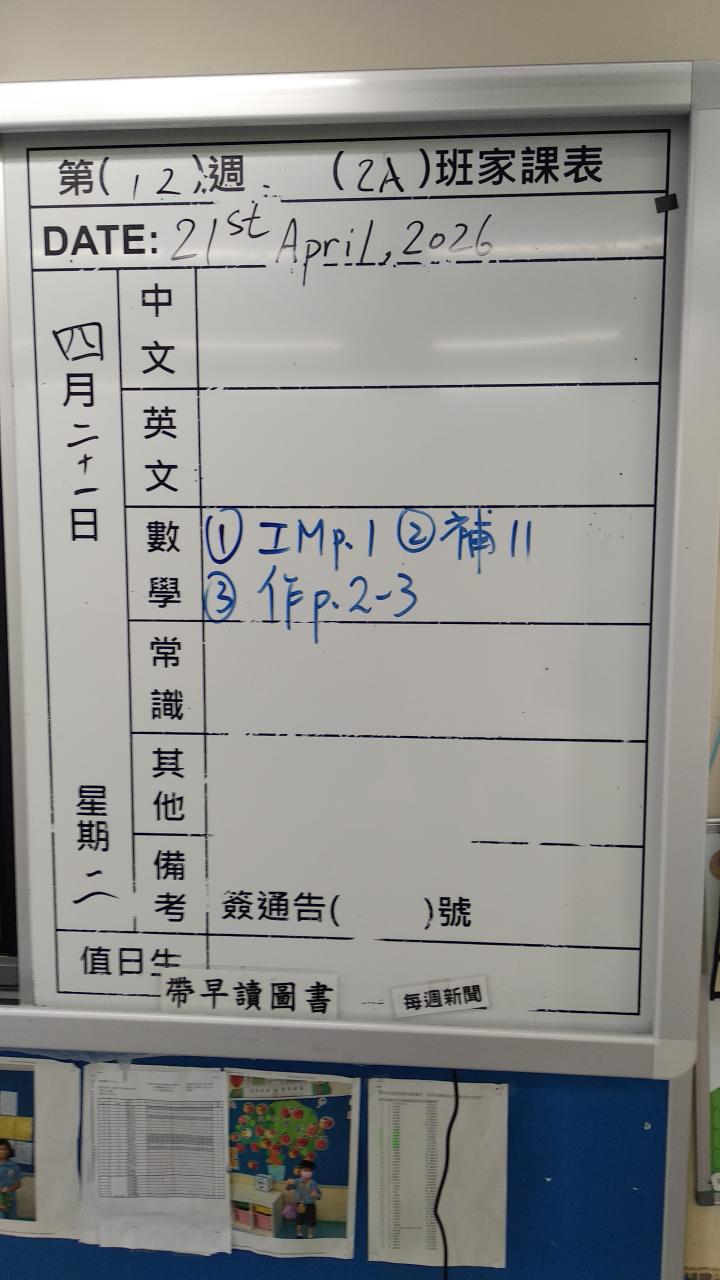 第(12)週 (2A)班家課表
DATE: 21st April, 2026
四月二十一日
星期二
中文
英文
數學
① IMp.1 ②補11
③ 作p.2-3
常識
其他
備考
簽通告( )號
值日生
帶早讀圖書
每週新聞